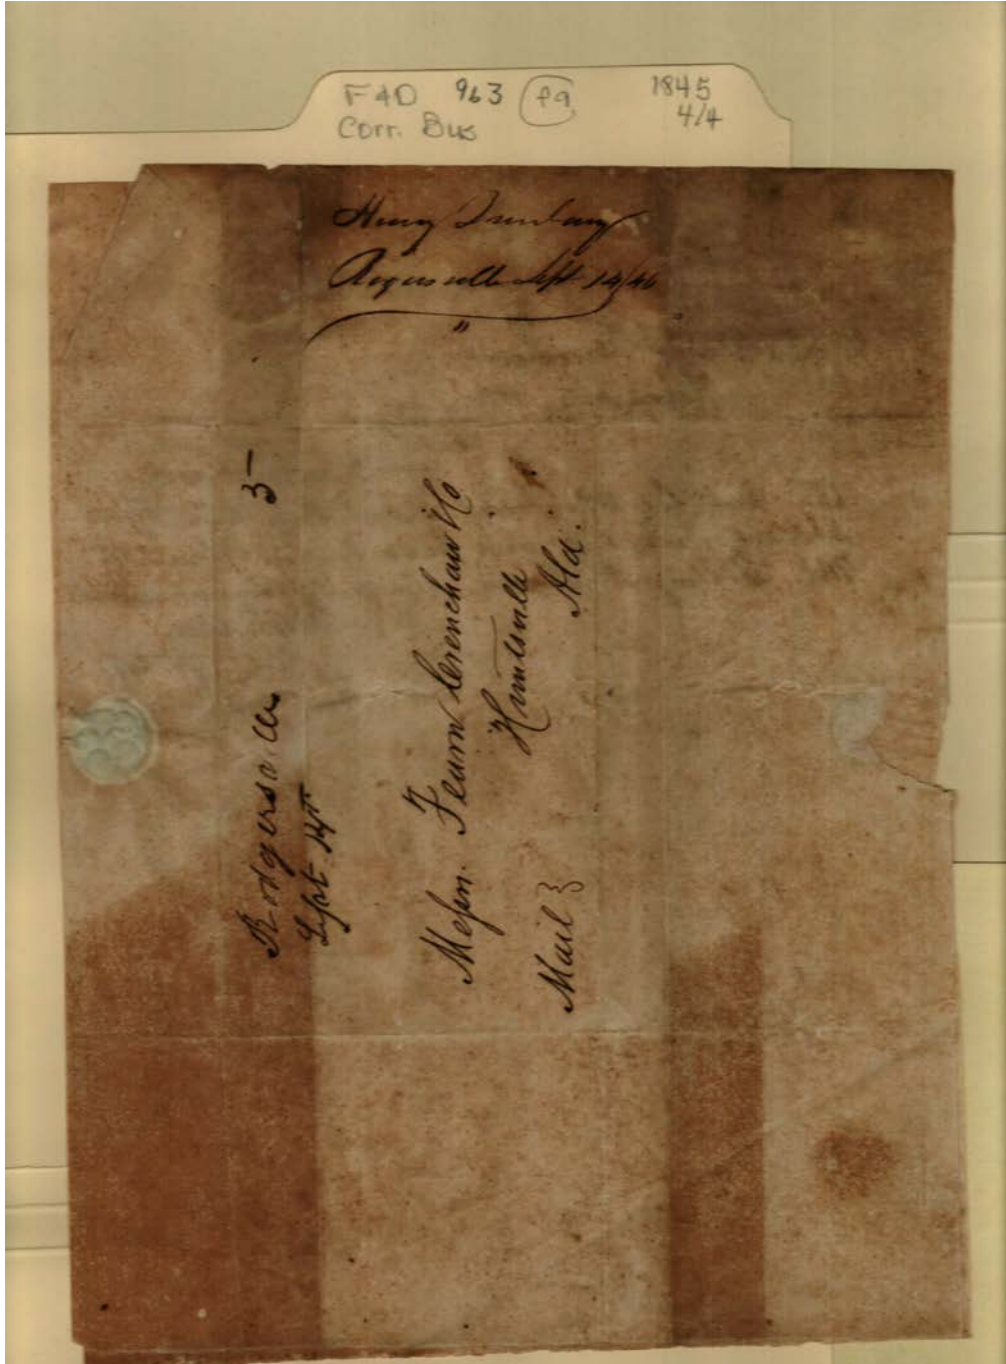 F4D 963 (F9) 1845
Corr. Bus 4/4
Henry
Rogersville Sept 14/46
"
Rodgersville 5
Sept 14th
Messrs. Fearn Crenchaw & Co
Huntsville
Mail } Ala.